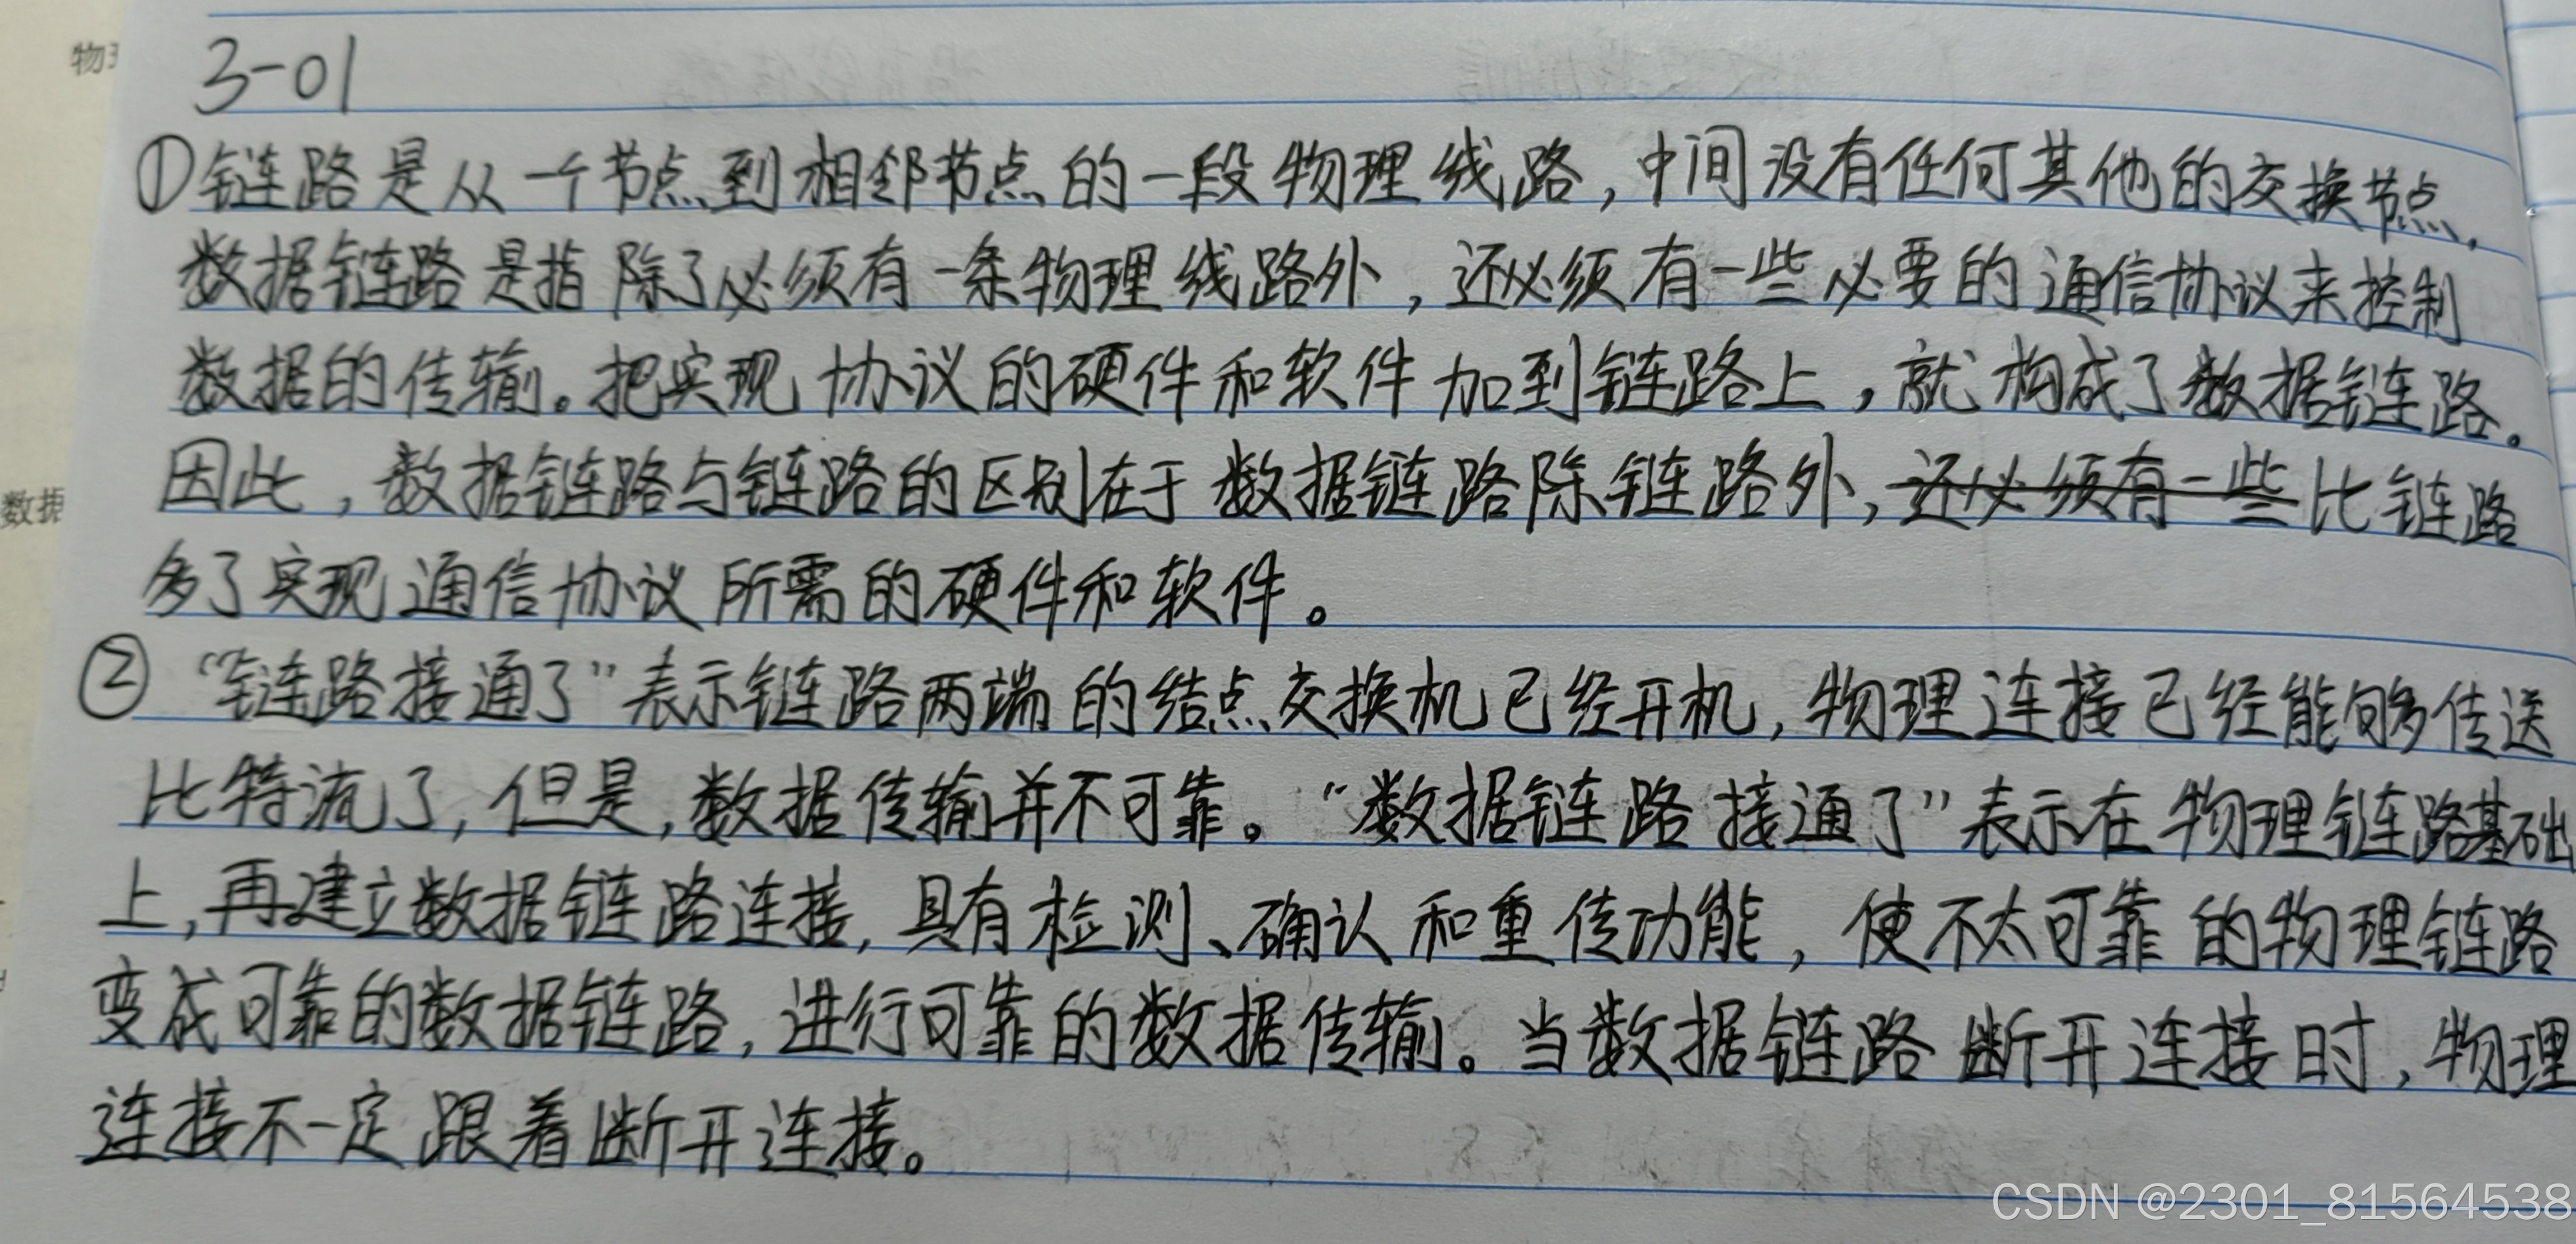 物理
3-01
①链路是从一个节点到相邻节点的一段物理线路,中间没有任何其他的交换节点,
数据链路是指除了必须有一条物理线路外,还必须有一些必要的通信协议来控制
数据的传输。把实现协议的硬件和软件加到链路上,就构成了数据链路。
数据
因此,数据链路与链路的区别在于数据链路除链路外,还必须有一些比链路
多了实现通信协议所需的硬件和软件。
②“链路接通了”表示链路两端的结点交换机已经开机,物理连接已经能够传送
比特流了,但是,数据传输并不可靠。“数据链路接通了”表示在物理链路基础
上,再建立数据链路连接,具有检测、确认和重传功能,使不太可靠的物理链路
变成可靠的数据链路,进行可靠的数据传输。当数据链路断开连接时,物理
连接不一定跟着断开连接。
CSDN @2301_81564538